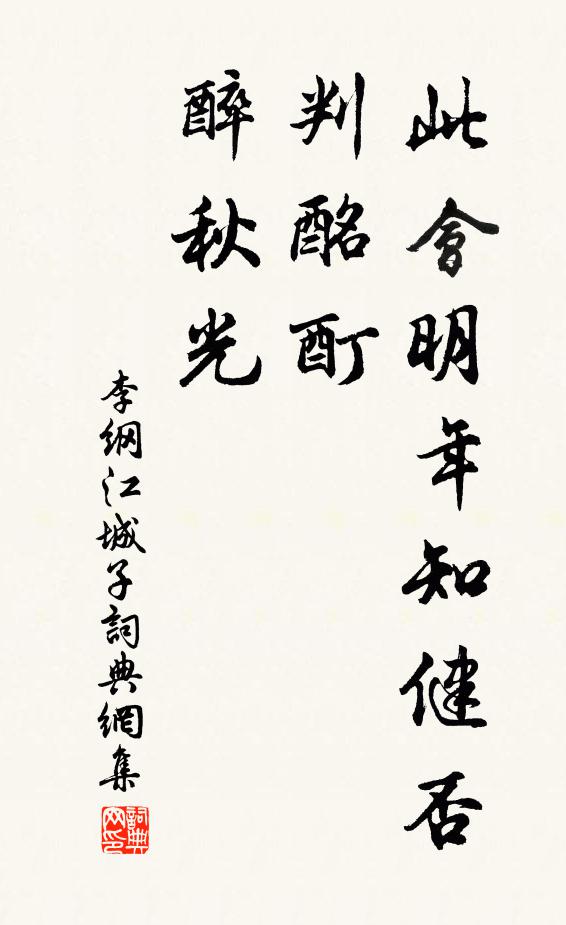 此會明年知健否
判酩酊
醉秋光
李綱江城子詞典網集
詞典
网印